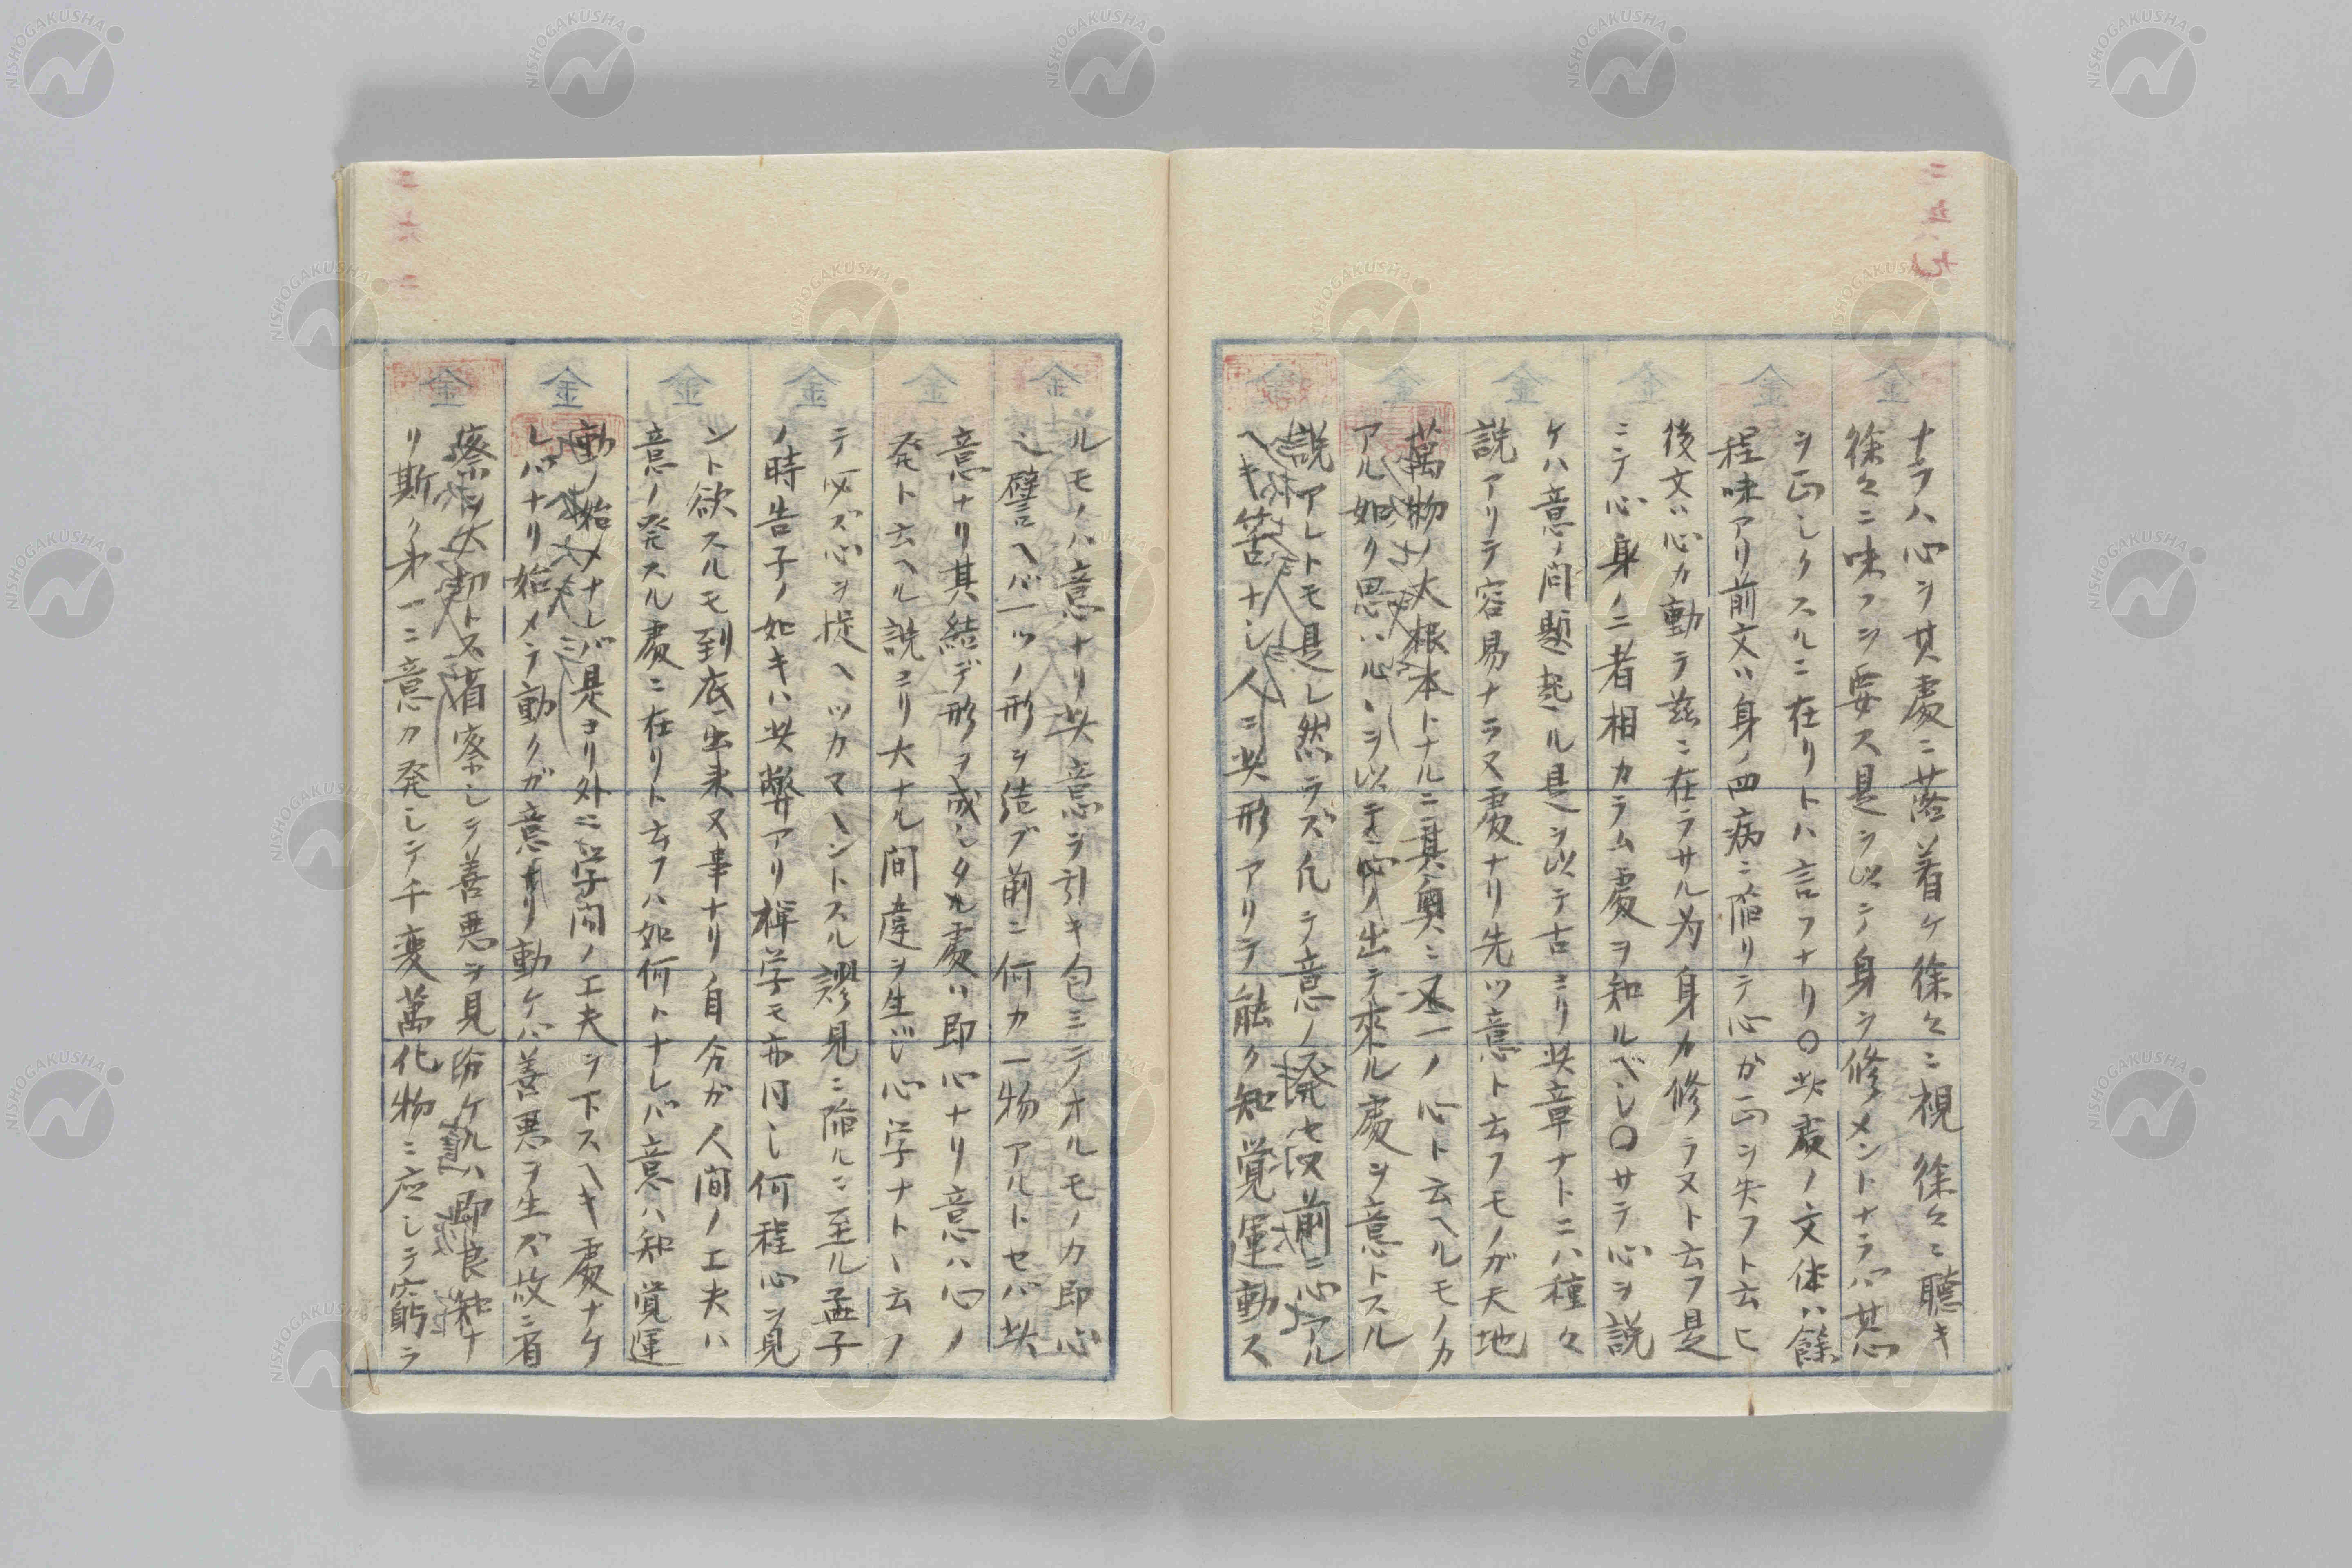 ナラハ心ヲ其處ニ落ノ着ケ徐々ニ視徐々ニ聽キ
徐々ニ味フヲ要ス是ヲ以テ身ヲ修メントナラバ其心
ヲ正シクスルニ在リトハ言フナリ〇此處ノ文体ハ餘
程味アリ前文ハ身ノ四病ニ陥リテ心ガ正ヲ失フト云ヒ
後文ハ心カ動ラ茲ニ在ラサル为身カ修ラヌト云フ是
ニテ心身ノ二者相カラム處ヲ知ルベシ〇サテ心ヲ説
ケハ意ノ問題起ル是ヲ以テ古ヨリ此章ナトニハ種々
説アリテ容易ナラヌ處ナリ先ツ意ト云フモノガ天地
萬物ノ大根本トナルニ其奧ニ又一ノ心ト云ヘルモノカ
アル如ク思ハルヽヲ以テ心ノ出テ來ル處ヲ意トスル
説アレトモ是レ然ラズ凡テ意ノ発セヌ前ニ心アル
ヘキ筈ナシ人ニ此形アリテ能ク知覚運動ス
ルモノハ意ナリ此意ヲ引キ包ミテオルモノカ即心
譬ヘバ一ツノ形ヲ結ブ前ニ何カ一物アルトセバ此
意ナリ其結デ形ヲ成シタル處ハ即心ナリ意ハ心ノ
発ト云ヘル説ヨリ大ナル間違ヲ生ジ心学ナトヽ云フ
テ必ズ心ヲ捉ヘツカマヘントスル謬見ニ陥ルニ至ル孟子
ノ時告子ノ如キハ此弊アリ禅学モ亦同シ何程心ヲ見
ント欲スルモ到底出来ヌ事ナリ自分ガ人間ノ工夫ハ
意ノ発スル處ニ在リト云フハ如何トナレバ意ハ知覚運
動ノ始メナレバ是ヨリ外ニ学問ノ工夫ヲ下スヘキ處ナケ
レバナリ始メテ動クガ意ナリ動ケバ善悪ヲ生ズ故ニ省
察ヲ大切トス省察シテ善悪ヲ見分ケルハ即良知ナ
リ斯ク才一ニ意カ発シテ千変萬化物ニ応シテ窮ラ
金
NISHOGAKUSHA